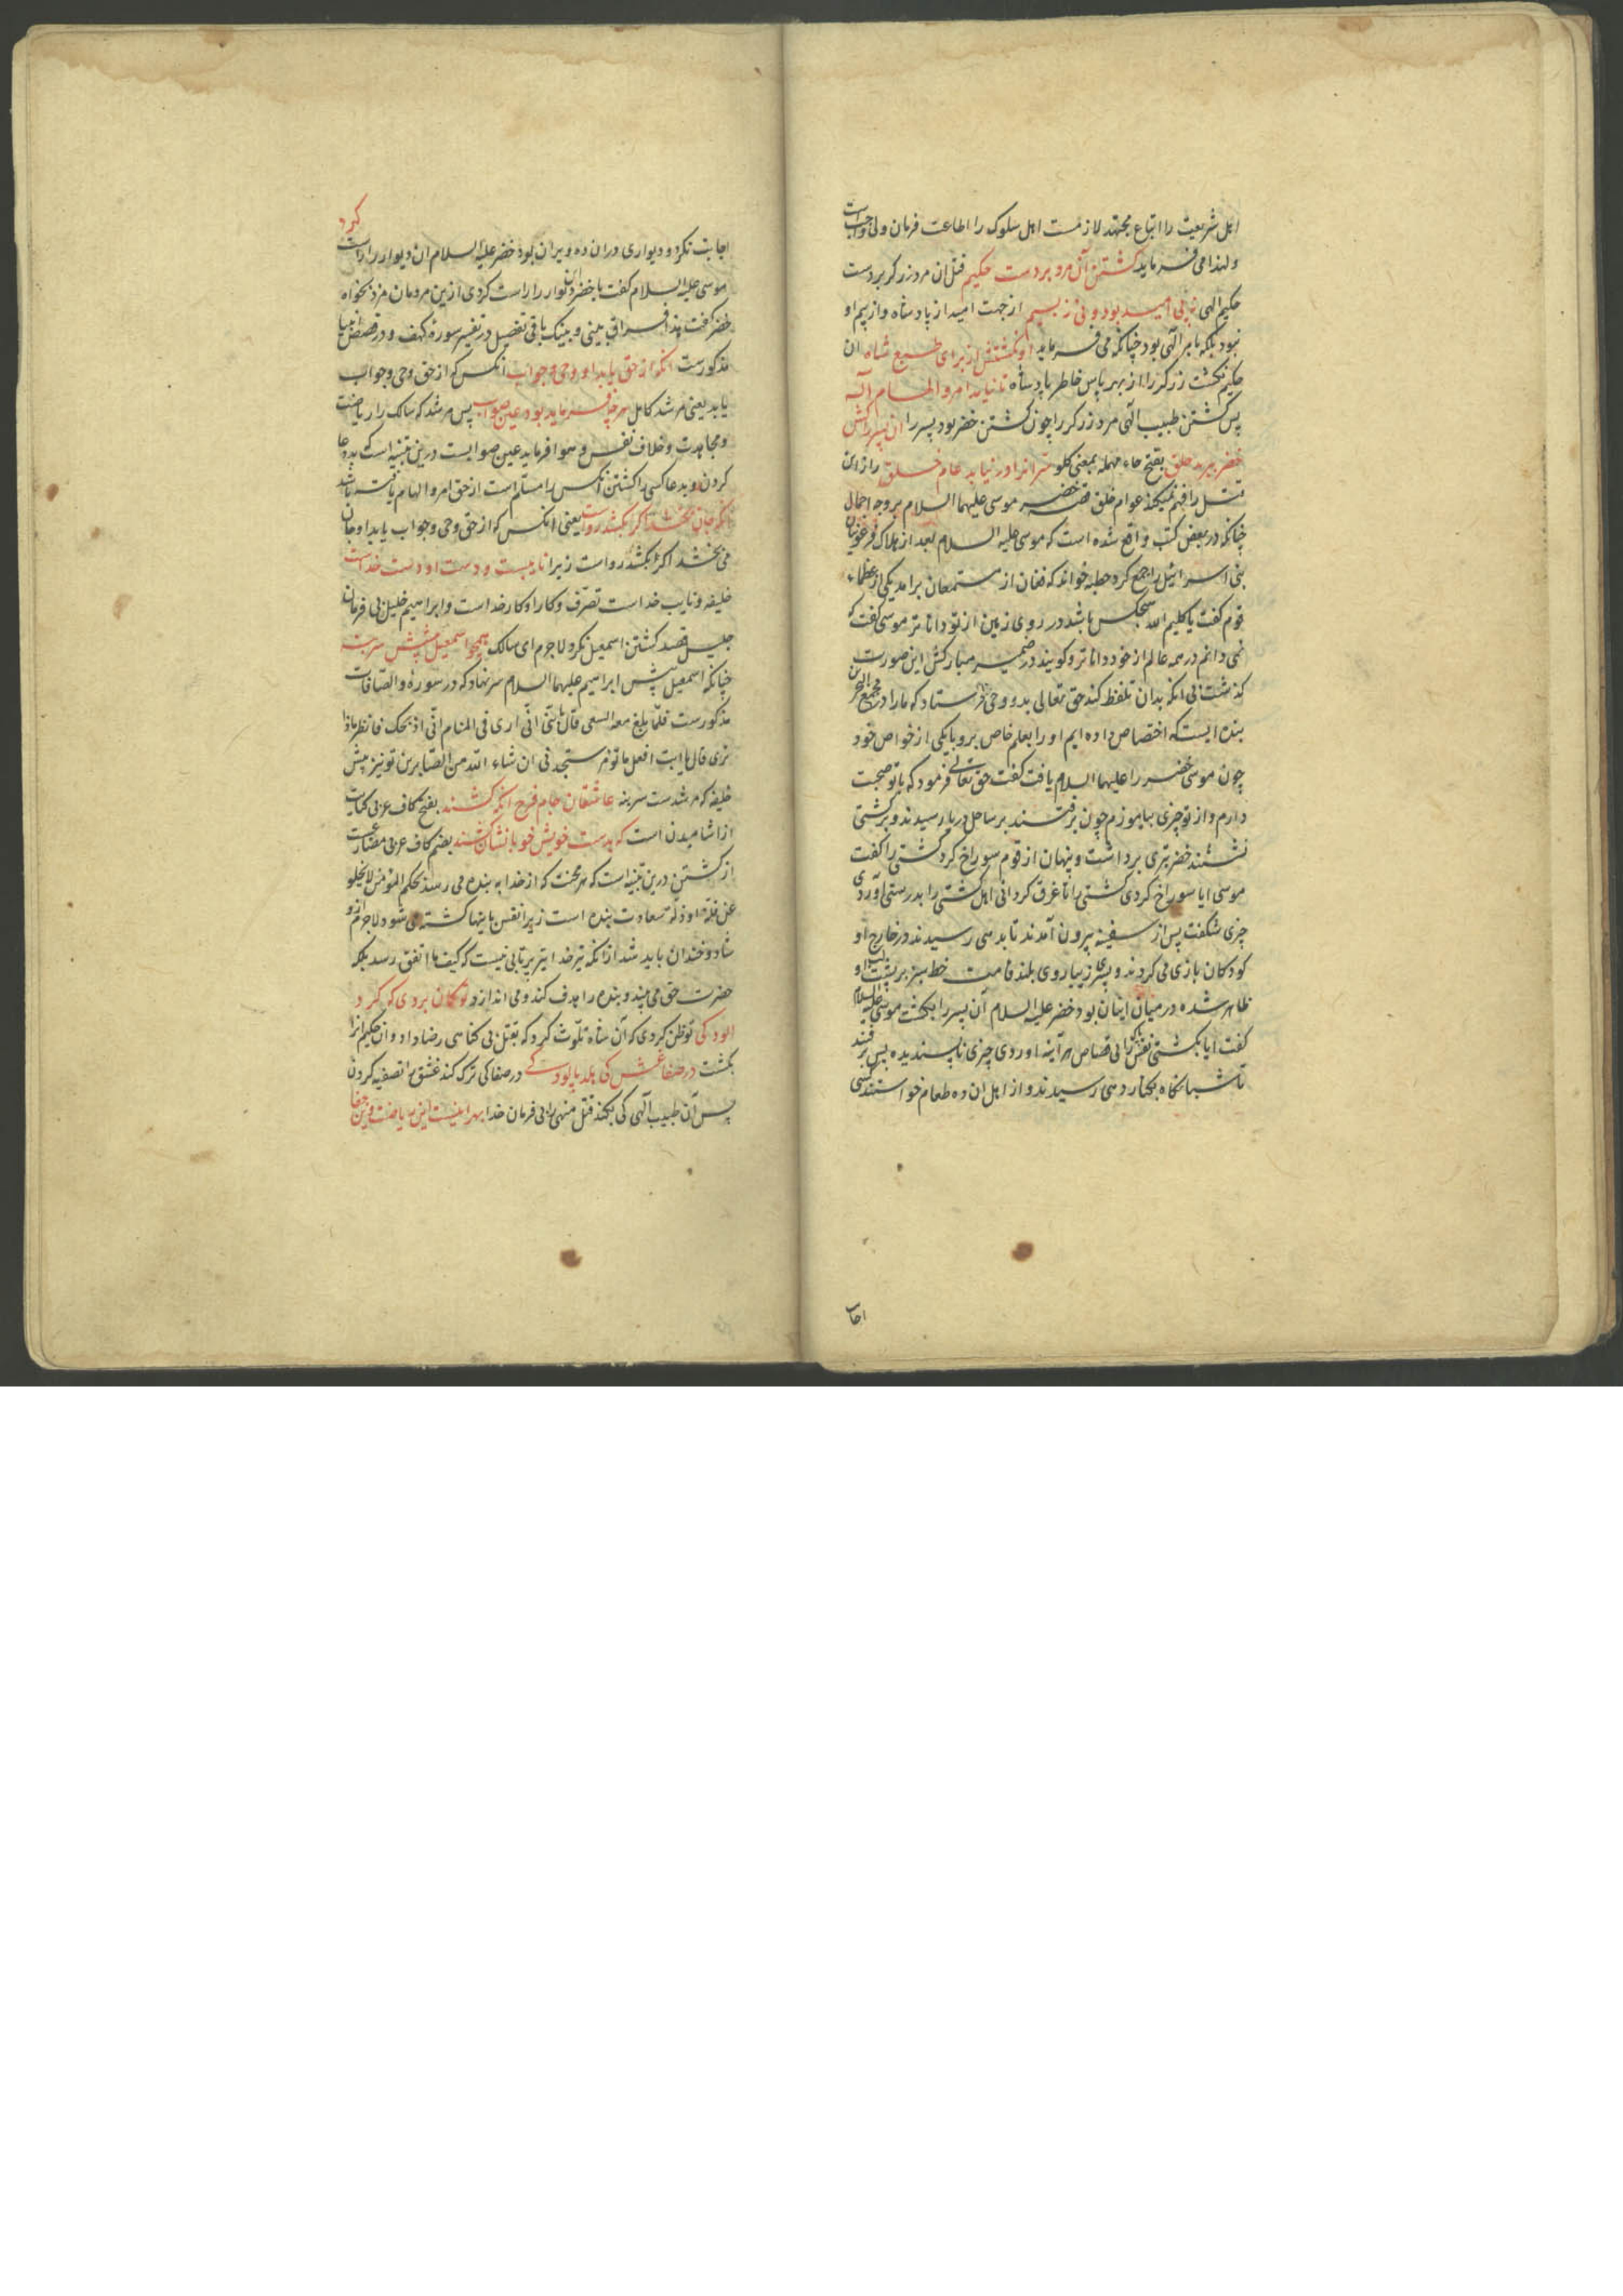 اهل شریعت را اتباع مجتهد لازمست اهل سلوک را اطاعت فرمان ولی واجب است
ولهذا می فرماید کشتن آن مرد بر دست حکیم قتل ان مرد زرکر بر دست
حکیم الهی نه پی امید بود و نی ز بیم از جهت امید از پادشاه و از بیم او
نبود بلکه بامر الهی بود چنانکه می فرماید او نکشتش از برای طبع شاه ان
حکیم نکشت زرکر را از بهر پاس خاطر پادشاه تا نیامد امر و الهام اله
پس کشتن طبیب الهی مرد زرکر را چون کشتن خضر بود پسر را ان پسر را کش
خضر ببرید حلق بفتح حاء مهمله بمعنی کلو سر انرا در نیابد عام خلق راز ان
قتل را فهم نمیکند عوام خلق قصه خضر موسی علیهما السلام بر وجه اجمال
چنانکه در بعض کتب واقع شده است که موسی علیه السلام بعد از هلاک فرعونیان
بنی اسرائیل را جمع کرد خطبه خواند که فغان از مستمعان برامد یکی از عظماء
قوم کفت یا کلیم الله هیچکس باشد در روی زمین از تو داناتر موسی کفت که
نمی دانم در همه عالم از خود داناتر و کویند در ضمیر مبارکش این صورت
کذشت بی انکه بدان تلفظ کند حق تعالی بدو وحی فرستاد که مارا در مجمع البحرین
بنده ایست که اختصاص داده ایم او را بعلم خاص برو با یکی از خواص خود
چون موسی خضر را علیهما السلام یافت کفت حق تعالی فرمود که با تو صحبت
دارم و از تو چیزی بیاموزم چون برفتند بر ساحل دریا رسیدند و بر کشتی
نشستند خضر تبری برداشت و پنهان از قوم سوراخ کرد کشتی را کفت
موسی ایا سوراخ کردی کشتی را تا غرق کردانی اهل کشتی را بدرستی اوردی
چیزی شکفت پس از سفینه بیرون آمدند تا بدهی رسیدند در خارج او
کودکان بازی می کردند و پسری زیباروی بلند قامت خط سبز بر پشت لب او
ظاهر شده در میان اینان بود خضر علیه السلام آن پسر را بکشت موسی علیه السلام
کفت ایا بکشتی نفس را بی قصاص هر آینه اوردی چیزی ناپسندیده پس برفتند
تا شبانکاه بکنار دهی رسیدند و از اهل ان ده طعام خواستند کسی
اجابت
اجابت نکرد و دیواری در ان ده ویران بود خضر علیه السلام ان دیوار را راست کرد
موسی علیه السلام کفت با خضر این دیوار را راست کردی ازین مردمان مزد بخواه
خضر کفت هذا فراق بینی و بینک باقی تفصیل در تفسیر سوره کهف و در قصص انبیا
مذکورست انکه از حق یابد او وحی و جواب انکس که از حق وحی و جواب
یابد یعنی مرشد کامل هرچه فرماید بود عین صواب پس مرشد که سالک را ریاضت
و مجاهدت و خلاف نفس و هوا فرماید عین صوابست درین تنبیه است که بددعا
کردن و بدعا کسی را کشتن انکس را مسلم است از حق امر و الهام یافته باشد
انکه جان بخشد اکر بکشد رواست یعنی انکس که از حق وحی و جواب یابد او جان
می بخشد اکر بکشد رواست زیرا نایبست و دست او دست خداست
خلیفه و نایب خداست تصرف و کار او کار خداست و ابراهیم خلیل بی فرمان
جلیل قصد کشتن اسمعیل نکرد لاجرم ای سالک همچو اسمعیل پیشش سر بنه
چنانکه اسمعیل پیش ابراهیم علیهما السلام سر نهاد که در سورهٔ والصافات
مذکورست فلما بلغ معه السعی قال یا بنی انی اری فی المنام انی اذبحک فانظر ماذا
تری قال یا ابت افعل ما تؤمر ستجدنی ان شاء الله من الصابرین تو نیز پیش
خلیفه که مرشدست سر بنه عاشقان جام فرح انکه کشند بفتح کاف عربی کنایت
از اشامیدن است که بدست خویش خوبانشان کشند بضم کاف عربی مضارعست
از کشتن درین تنبیه است که هر محنت که از خدا به بنده می رسد بحکم المؤمن لا یخلو
عن قلة او ذلة سعادت بنده است زیرا نفس باینها کشته می شود لاجرم ازو
شاد و خندان باید شد از انکه تیر خدا تیر پرتابی نیست که کیف ما اتفق رسد بلکه
حضرت حق می بیند و بنده را هدف کند و می اندازد تو کمان بردی که کرد
الودکی تو ظن کردی که آن شاه تلوث کرد که بقتل بی کناهی رضا داد و ان حکیم انرا
بکشت در صفا غش کی هلد پالودکی در صفا کی ترک کند غش را تصفیه کردن
پس آن طبیب الهی کی بکند قتل منهی را بی فرمان خدا بهر اینست این ریاضت وین جفا